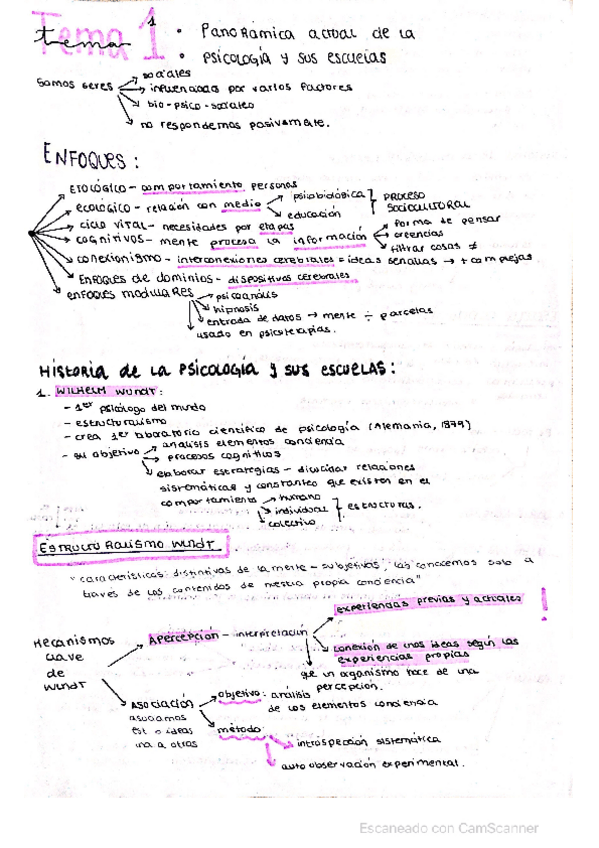 Tema 1 • Panorámica actual de la
• psicología y sus escuelas
Somos seres
sociales
influenciados por varios factores
bio-psico-sociales
no respondemos pasivamente.
ENFOQUES:
ETOLÓGICO - comportamiento personas
ecológico - relación con medio
psicobiológica
educación
PROCESO
SOCIOCULTURAL
ciclo vital - necesidades por etapas
cognitivos - mente procesa la información
forma de pensar
creencias
filtrar cosas ≠
conexionismo - interconexiones cerebrales = ideas sencillas → + complejas.
ENFOQUES de dominios - dispositivos cerebrales
enfoques modulares
psicoanális
hipnosis
entrada de datos → mente ÷ parcelas
usado en psicoterapias.
Historia de la Psicología y sus escuelas:
1. WILHELM WUNDT:
- 1er psicólogo del mundo
- estructuralismo
- crea 1er laboratorio científico de psicología (Alemania, 1879)
- su objetivo
análisis elementos conciencia
procesos cognitivos
elaborar estrategias - dilucidar relaciones
sistemáticas y constantes que existen en el
comportamiento
humano
individual
colectivo
estructuras.
ESTRUCTURALISMO WUNDT
"características distintivas de la mente - subjetivas, las conocemos solo a
través de los contenidos de nuestra propia conciencia"
Mecanismos
clave
de
WUNDT
Apercepción - interpretación
experiencias previas y actuales
conexión de unas ideas según las
experiencias propias
que un organismo hace de una
percepción.
Asociación
asociamos
ideas
una a otras
objetivo: análisis
de los elementos conciencia
método:
introspección sistemática
auto observación experimental.
Escaneado con CamScanner